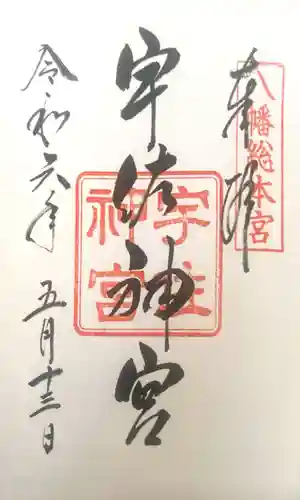 奉拝
八幡総本宮
宇佐神宮
宇佐神宮
令和六年 五月十三日